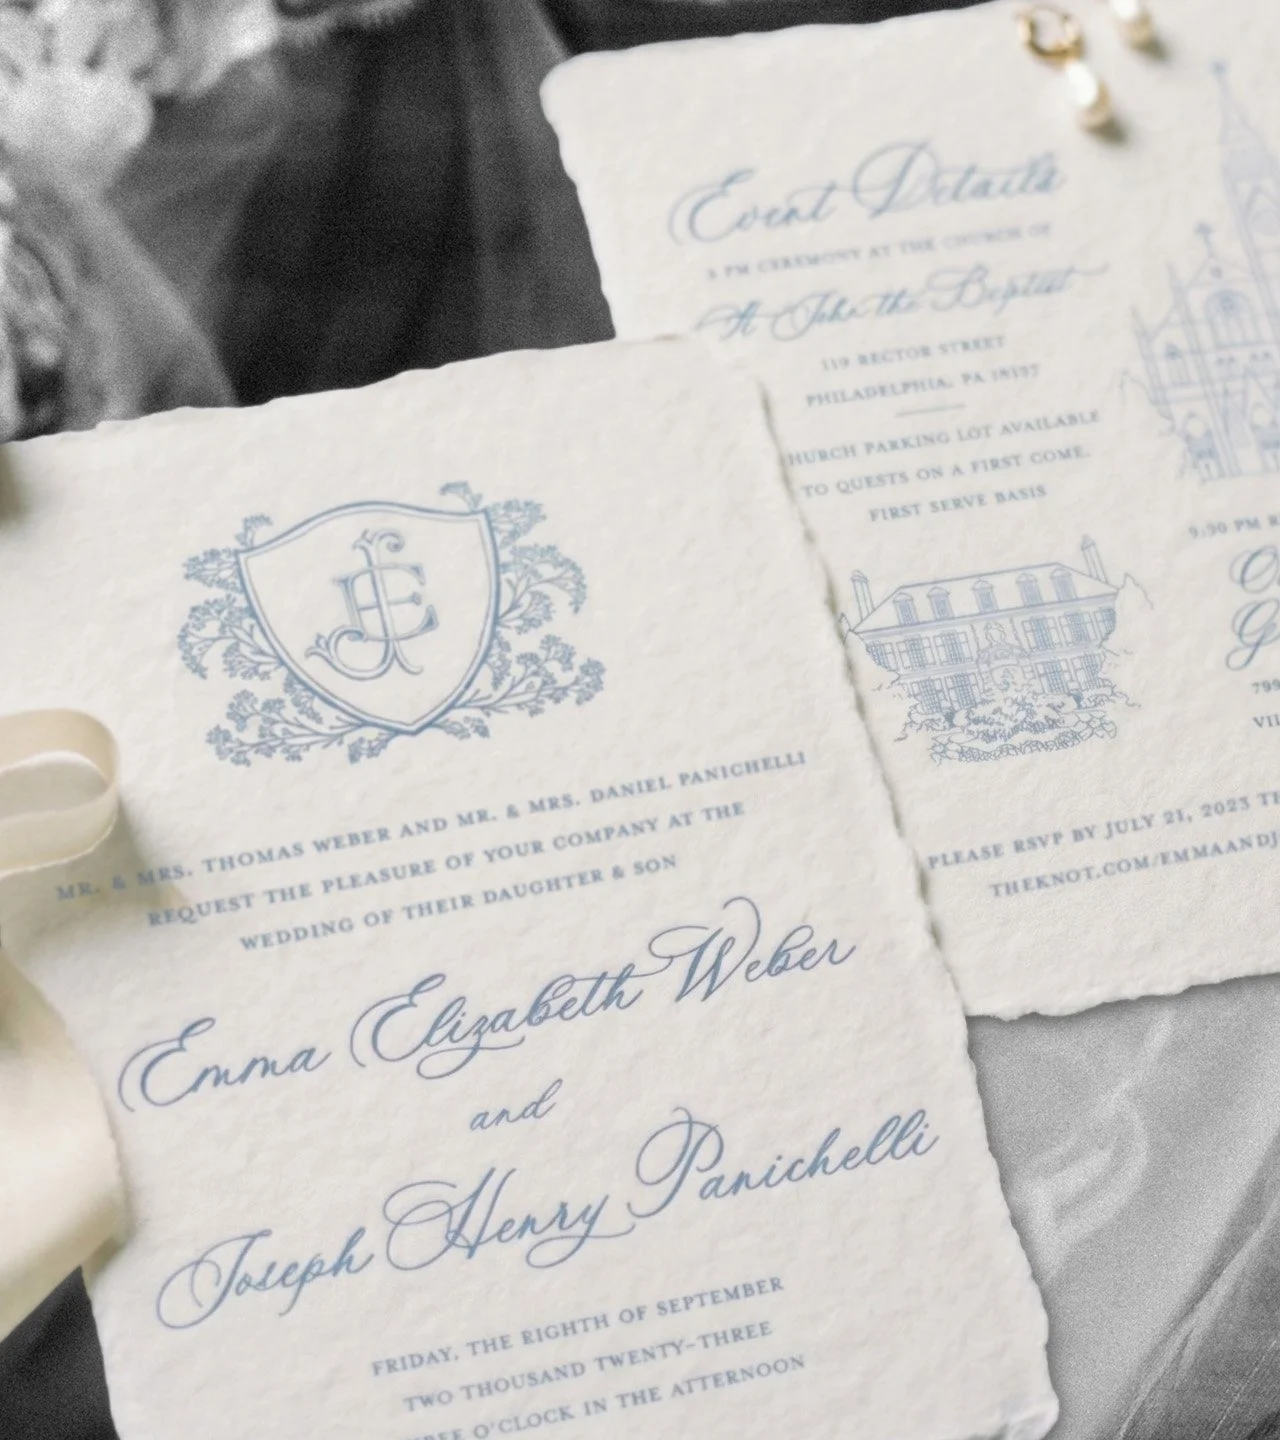 Event Details
3 PM CEREMONY AT THE CHURCH OF
St John the Baptist
119 RECTOR STREET
PHILADELPHIA, PA
HURCH PARKING LOT AVAILABLE
TO QUESTS ON A FIRST COME,
FIRST SERVE BASIS
9:30 PM R
799
VIL
PLEASE RSVP BY JULY 21, 2023 TH
THEKNOT.COM/EMMAANDJ
JE
MR. & MRS. THOMAS WEBER AND MR. & MRS. DANIEL PANICHELLI
REQUEST THE PLEASURE OF YOUR COMPANY AT THE
WEDDING OF THEIR DAUGHTER & SON
Emma Elizabeth Weber
and
Joseph Henry Panichelli
FRIDAY, THE RIGHTH OF SEPTEMBER
TWO THOUSAND TWENTY-THREE
REE O'CLOCK IN THE AFTERNOON